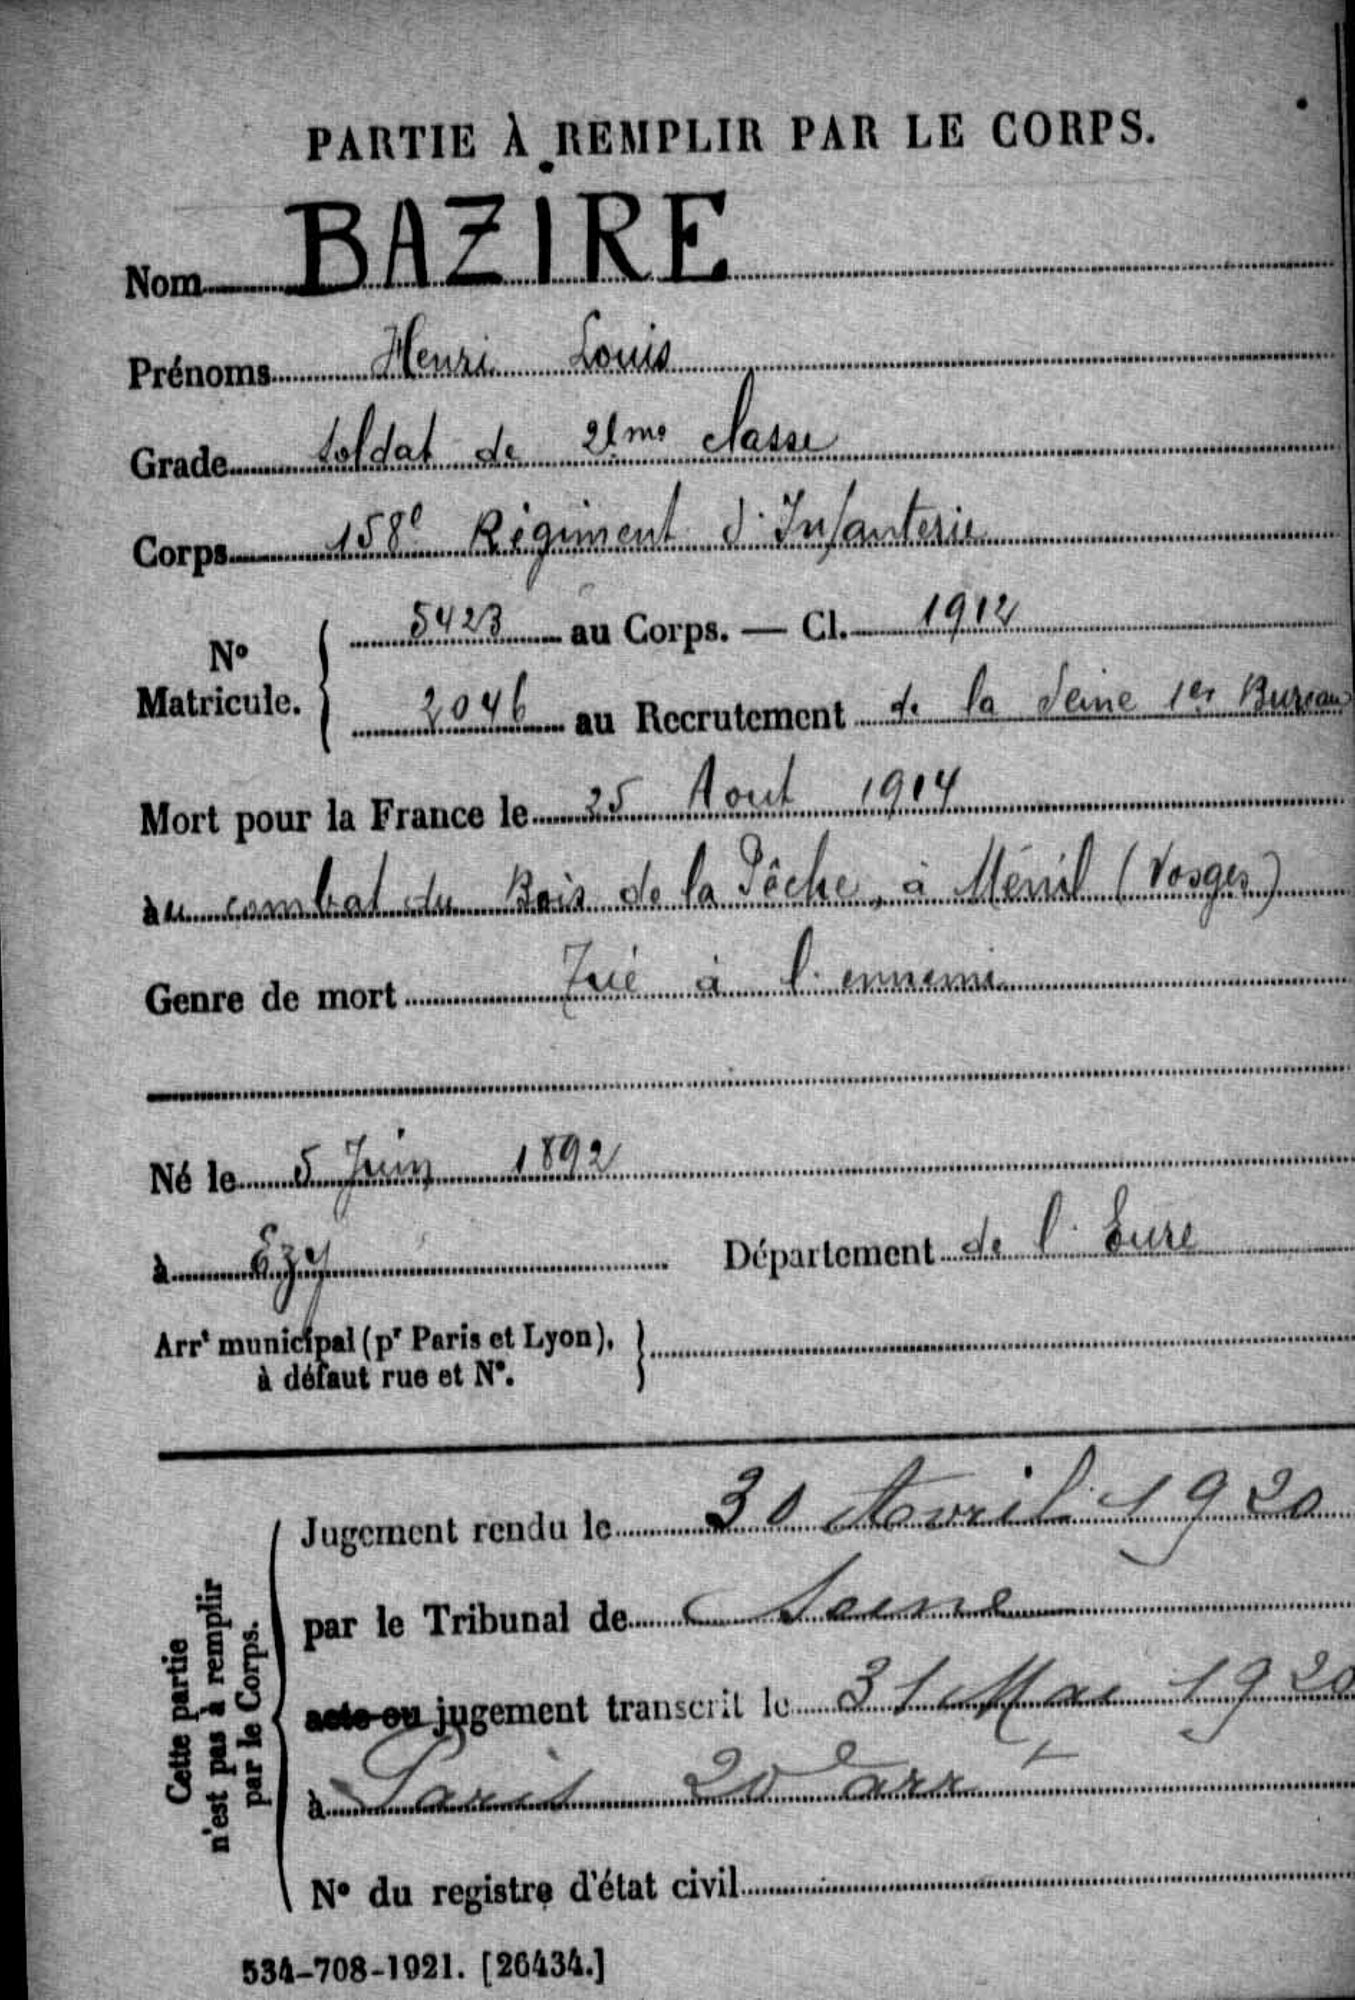 PARTIE À REMPLIR PAR LE CORPS.
Nom BAZIRE
Prénoms Henri Louis
Grade Soldat de 2ème classe
Corps 158e Régiment d'Infanterie
N° Matricule.
5423 au Corps. — Cl. 1912
2046 au Recrutement de la Seine 1er Bureau
Mort pour la France le 25 Aout 1914
au combat du Bois de la Pêche, à Ménil (Vosges)
Genre de mort Tué à l'ennemi
Né le 5 Juin 1892
à Ezy Département de l'Eure
Arrt municipal (pr Paris et Lyon),
à défaut rue et N°.
Cette partie
n'est pas à remplir
par le Corps.
Jugement rendu le 30 Avril 1920
par le Tribunal de Seine
acte ou jugement transcrit le 31 Mai 1920
à Paris 20e arrt
N° du registre d'état civil
534-708-1921. [26434.]